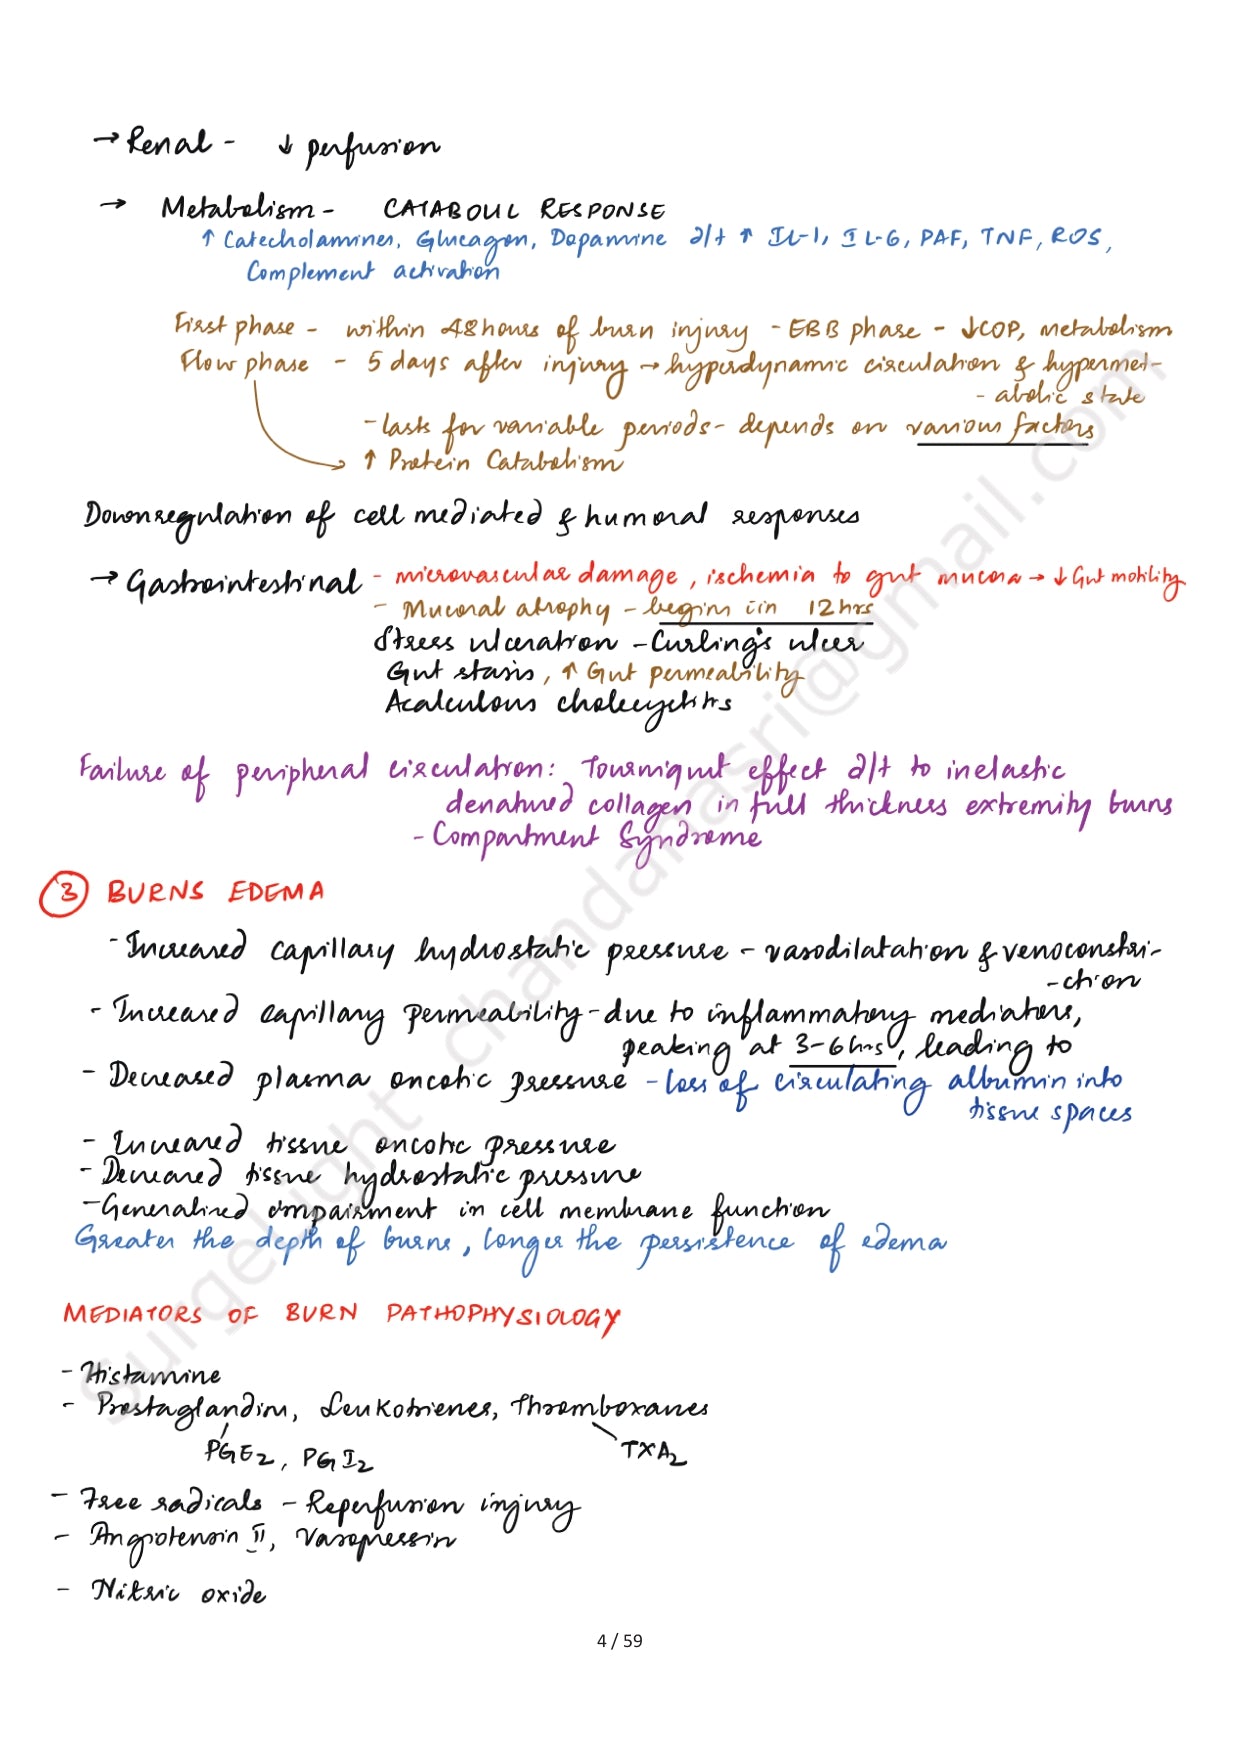 → Renal - ↓ perfusion
→ Metabolism - CATABOLIC RESPONSE
↑ Catecholamines, Glucagon, Dopamine d/t ↑ IL-1, IL-6, PAF, TNF, ROS,
Complement activation
First phase - within 48 hours of burn injury - EBB phase - ↓COP, metabolism
Flow phase - 5 days after injury → hyperdynamic circulation & hypermet-
- abolic state
- lasts for variable periods - depends on various factors
↑ Protein Catabolism
Downregulation of cell mediated & humoral responses
→ Gastrointestinal - microvascular damage, ischemia to gut mucosa → ↓ Gut motility
- Mucosal atrophy - begins iin 12 hrs
Stress ulceration - Curling's ulcer
Gut stasis, ↑ Gut permeability
Acalculous cholecystitis
Failure of peripheral circulation: Tourniquet effect d/t to inelastic
denatured collagen in full thickness extremity burns
- Compartment Syndrome
3 BURNS EDEMA
- Increased capillary hydrostatic pressure - vasodilatation & venoconstri-
- ction
- Increased capillary permeability - due to inflammatory mediators,
peaking at 3-6 hrs, leading to
- Decreased plasma oncotic pressure - loss of circulating albumin into
tissue spaces
- Increased tissue oncotic pressure
- Decreased tissue hydrostatic pressure
- Generalised impairment in cell membrane function
Greater the depth of burns, longer the persistence of edema
MEDIATORS OF BURN PATHOPHYSIOLOGY
- Histamine
- Prostaglandins, Leukotrienes, Thromboxanes
PGE2, PGI2 TXA2
- Free radicals - Reperfusion injury
- Angiotensin II, Vasopressin
- Nitric oxide
4 / 59
surgelight chandanasri@gmail.com